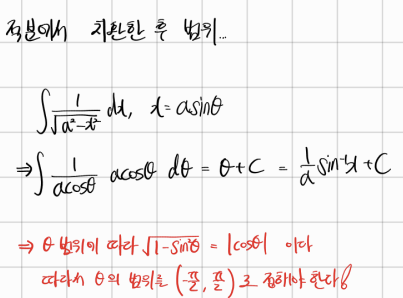 적분에서 치환한 후 범위...
∫ 1/√(a²-x²) dx, x = asinθ
⇒ ∫ 1/(acosθ) acosθ dθ = θ+C = 1/a sin⁻¹x + C
⇒ θ 범위에 따라 √(1-sin²θ) = |cosθ| 이다
따라서 θ의 범위를 (-π/2, π/2) 로 정해야 한다!